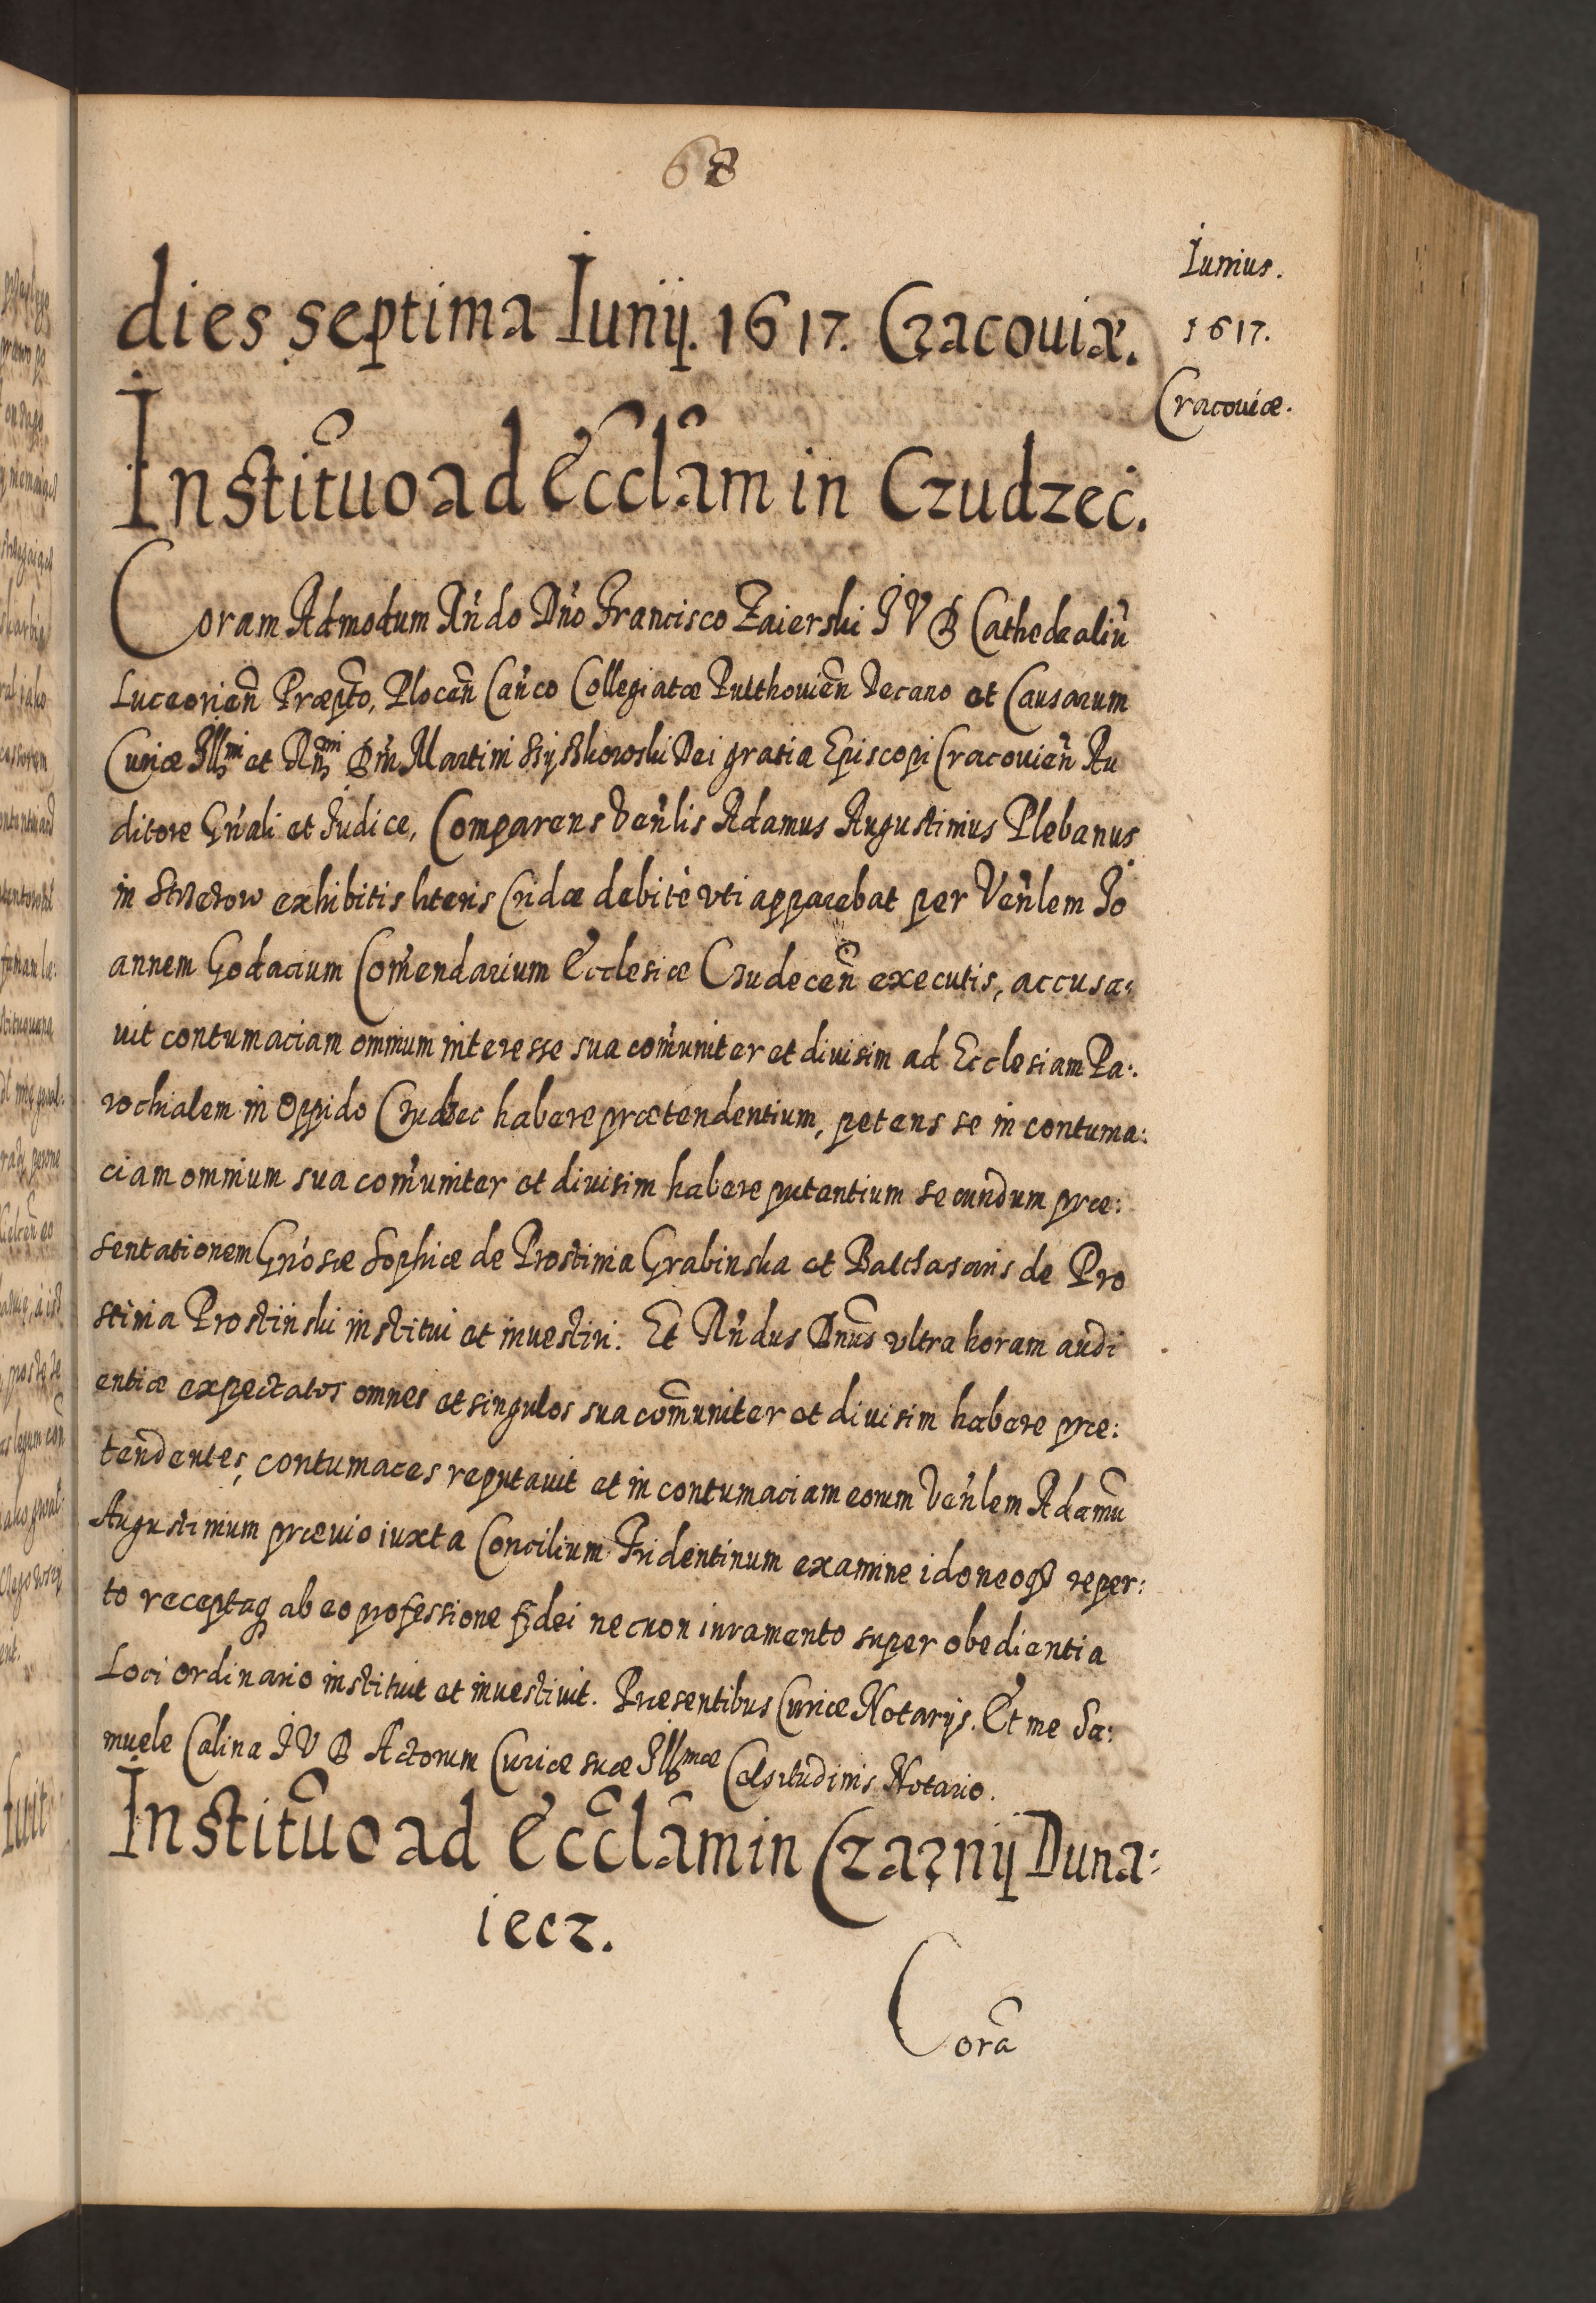 68
Iunius.
1617.
Cracouiæ.
dies septima Iunij. 1617. Cracouiæ.
Institũo ad Ecclãm in Czudzec.
Coram Admodum Rńdo Dńo Francisco Zaierski I V D Cathedraliũ
Luceorieñ Præpto, Ploceñ Cańco Collegiatæ Pulthouieñ Decano et Causarum
Curiæ Illmi et Rńmi Dńi Martini Szyszkowski Dei gratia Episcopi Cracouieñ Au
ditore Gńali et Iudice, Comparens Veńlis Adamus Augustinius Plebanus
in exhibitis literis Cridæ debitè vti apparebat per Veńlem Io
annem Godacium Com̃endarium Ecclesiæ Czudeceñ executis, accusa:
uit contumaciam omnium interesse sua com̃uniter et diuisim ad Ecclesiam Pa:
rochialem in Oppido Czudzec habere prætendentium, petens se in contuma:
ciam omnium sua com̃uniter et diuisim habere putantium secundum præ:
sentationem Gńosæ Sophiæ de Prostinia Grabinska et Balthasaris de Pro
stinia Prostinski institui et inuestiri. Et Rńdus Dnũs vltra horam audi
entiæ expectatos omnes et singulos sua com̃uniter et diuisim habere præ:
tendentes, contumaces reputauit et in contumaciam eorum Veńlem Adamũ
Augustinium præuio iuxta Concilium Tridentinum examine idoneoq₃ reper:
to receptaq₃ ab eo professione fidei necnon iuramento super obedientia
Loci ordinario instituit et inuestiuit. Præsentibus Curiæ Notarijs. Et me Sa:
muele Calina I V D Actorum Curiæ suæ Illmæ Celsitudinis Notario.
Institũo ad Ecclãm in Czarnij Duna:
iecz.
Corã